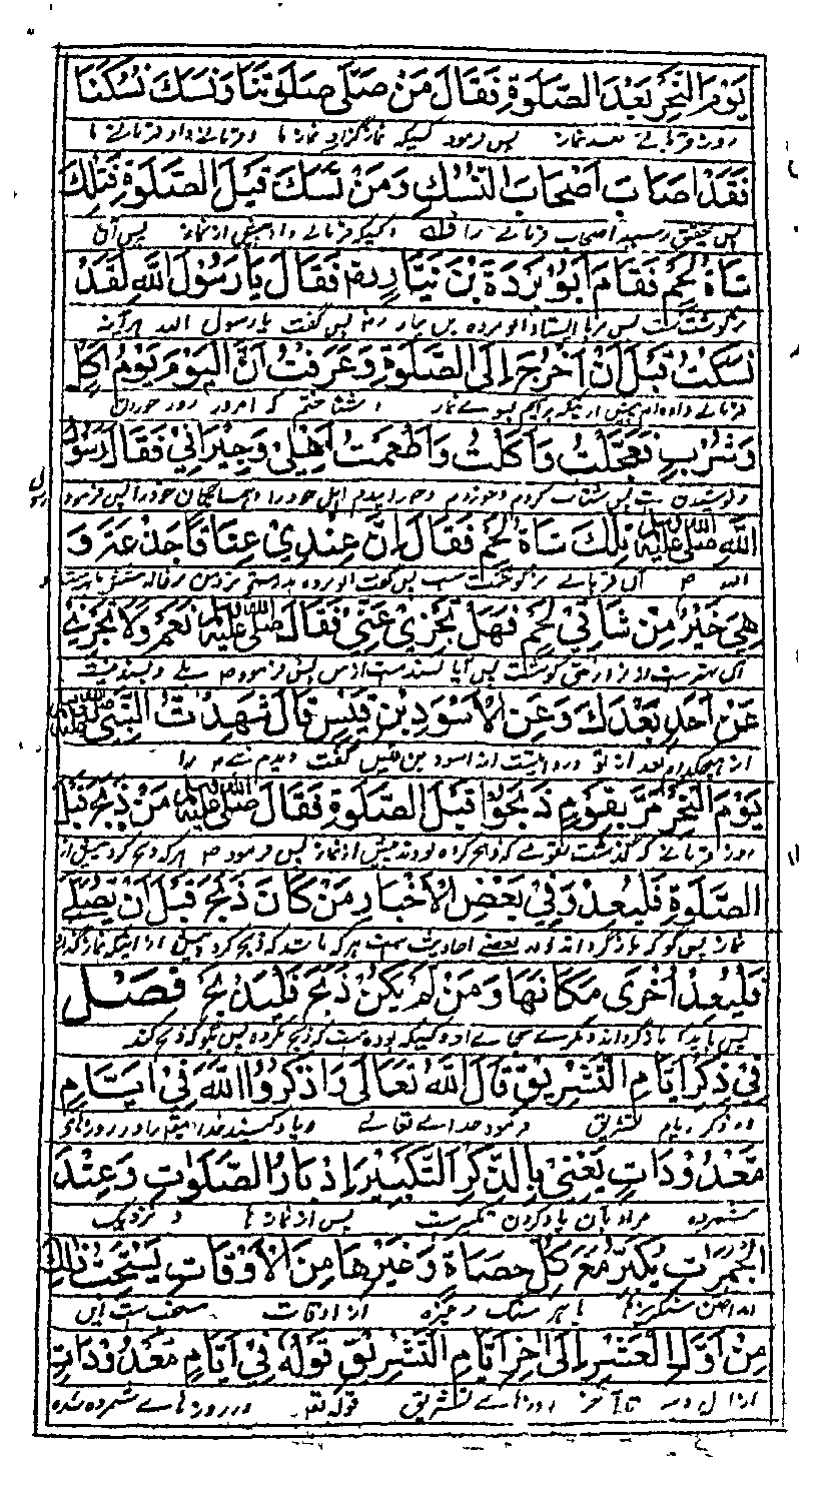 يَوْمَ النَّحْرِ بَعْدَ الصَّلٰوةِ فَقَالَ مَنْ صَلَّى صَلٰوتَنَا وَنَسَكَ نُسُكَنَا
روز قربانی بعد نماز پس فرمود کسیکه نماز گزارد نماز ما و قربانی داد قربانی ما
فَقَدْ اَصَابَ اَصْحَابَ النُّسُكِ وَمَنْ نَسَكَ قَبْلَ الصَّلٰوةِ فَتِلْكَ
پس تحقیق رسید اصحاب قربانی را و کسیکه قربانی داد پیش از نماز پس آن
شَاةُ لَحْمٍ فَقَامَ اَبُوْ بُرْدَةَ بْنُ نِيَّارٍ رضـ فَقَالَ يَا رَسُوْلَ اللهِ لَقَدْ
پس برپا ایستاد ابو برده بن نیار رض پس گفت یا رسول الله هرآینه
نَسَكْتُ قَبْلَ اَنْ اَخْرُجَ اِلَى الصَّلٰوةِ وَعَرَفْتُ اَنَّ الْيَوْمَ يَوْمُ اَكْلٍ
قربانی داده‌ام پیش ازینکه برآیم بسوے نماز و شناختم که امروز روز خوردن
وَشُرْبٍ فَعَجَّلْتُ وَاَكَلْتُ وَاَطْعَمْتُ اَهْلِيْ وَجِيْرَانِيْ فَقَالَ رَسُوْلُ
و نوشیدن ست پس شتاب کردم و خوردم و خورانیدم اهل خود را و همسایگان خود را پس فرمود رسول
اللهِ صلى الله عليه وسلم تِلْكَ شَاةُ لَحْمٍ فَقَالَ اِنَّ عِنْدِيْ عِنَاقًا جَذَعَةً وَ
الله ص آن قربانی بز گوشت ست پس گفت ابو برده بدرستی نزد من
هِيَ خَيْرٌ مِنْ شَاتَيْ لَحْمٍ فَهَلْ تَجْزِيْ عَنِّيْ فَقَالَ صلى الله عليه وسلم نَعَمْ وَلَا تَجْزِيْ
آن بهترست از دو بز گوشت پس آیا بسندست از من پس فرمود ص بلے و بسند نیست
عَنْ اَحَدٍ بَعْدَكَ وَعَنِ الْاَسْوَدِ بْنِ قَيْسٍ قَالَ شَهِدْتُ النَّبِيَّ صلى الله عليه وسلم
از هیچکدام بعد از تو و روایتست از اسود بن قیس گفت دیدم نبی ص را
يَوْمَ النَّحْرِ مَرَّ بِقَوْمٍ ذَبَحُوْا قَبْلَ الصَّلٰوةِ فَقَالَ صلى الله عليه وسلم مَنْ ذَبَحَ قَبْلَ
روز قربانی که گذشت بقومے که ذبح کرده بودند پیش از نماز پس فرمود ص هر که ذبح کرد پیش از
الصَّلٰوةِ فَلْيُعِدْ وَفِيْ بَعْضِ الْاَخْبَارِ مَنْ كَانَ ذَبَحَ قَبْلَ اَنْ يُصَلِّيَ
نماز پس گو که بازگرداند و در بعضے احادیث ست هر که باشد که ذبح کرد پیش از اینکه نماز گذارد
فَلْيُعِدْ اُخْرَى مَكَانَهَا وَمَنْ لَمْ يَكُنْ ذَبَحَ فَلْيَذْبَحْ فَصْل
پس باید که بازگرداند دیگرے بجاے او و کسیکه نبوده ست که ذبح کرده پس بگو که ذبح کند
فِيْ ذِكْرِ اَيَّامِ التَّشْرِيْقِ قَالَ اللهُ تَعَالَى وَاذْكُرُوا اللهَ فِيْ اَيَّامٍ
در ذکر ایام تشریق فرمود خداے تعالے و یاد کنید خدایتعالی را در روزهاے
مَعْدُوْدَاتٍ يَعْنِيْ بِالذِّكْرِ التَّكْبِيْرَ اِدْبَارَ الصَّلَوٰتِ وَعِنْدَ
شمرده مراد بآن یاد کردن تکبیرست پس از نماز ها و نزدیک
الْجَمَرَاتِ يُكَبِّرُ مَعَ كُلِّ حَصَاةٍ وَغَيْرِهَا مِنَ الْاَوْقَاتِ يَسْتَحِبُّ ذٰلِكَ
انداختن سنگریزها با هر سنگ و غیره از اوقات مستحب ست این
مِنْ اَوَّلِ الْعَشْرِ اِلَى اٰخِرِ اَيَّامِ التَّشْرِيْقِ قَوْلُهُ فِيْ اَيَّامٍ مَعْدُوْدَاتٍ
از اول تا آخر روزهاے تشریق قوله تعـ در روزهاے شمرده شده